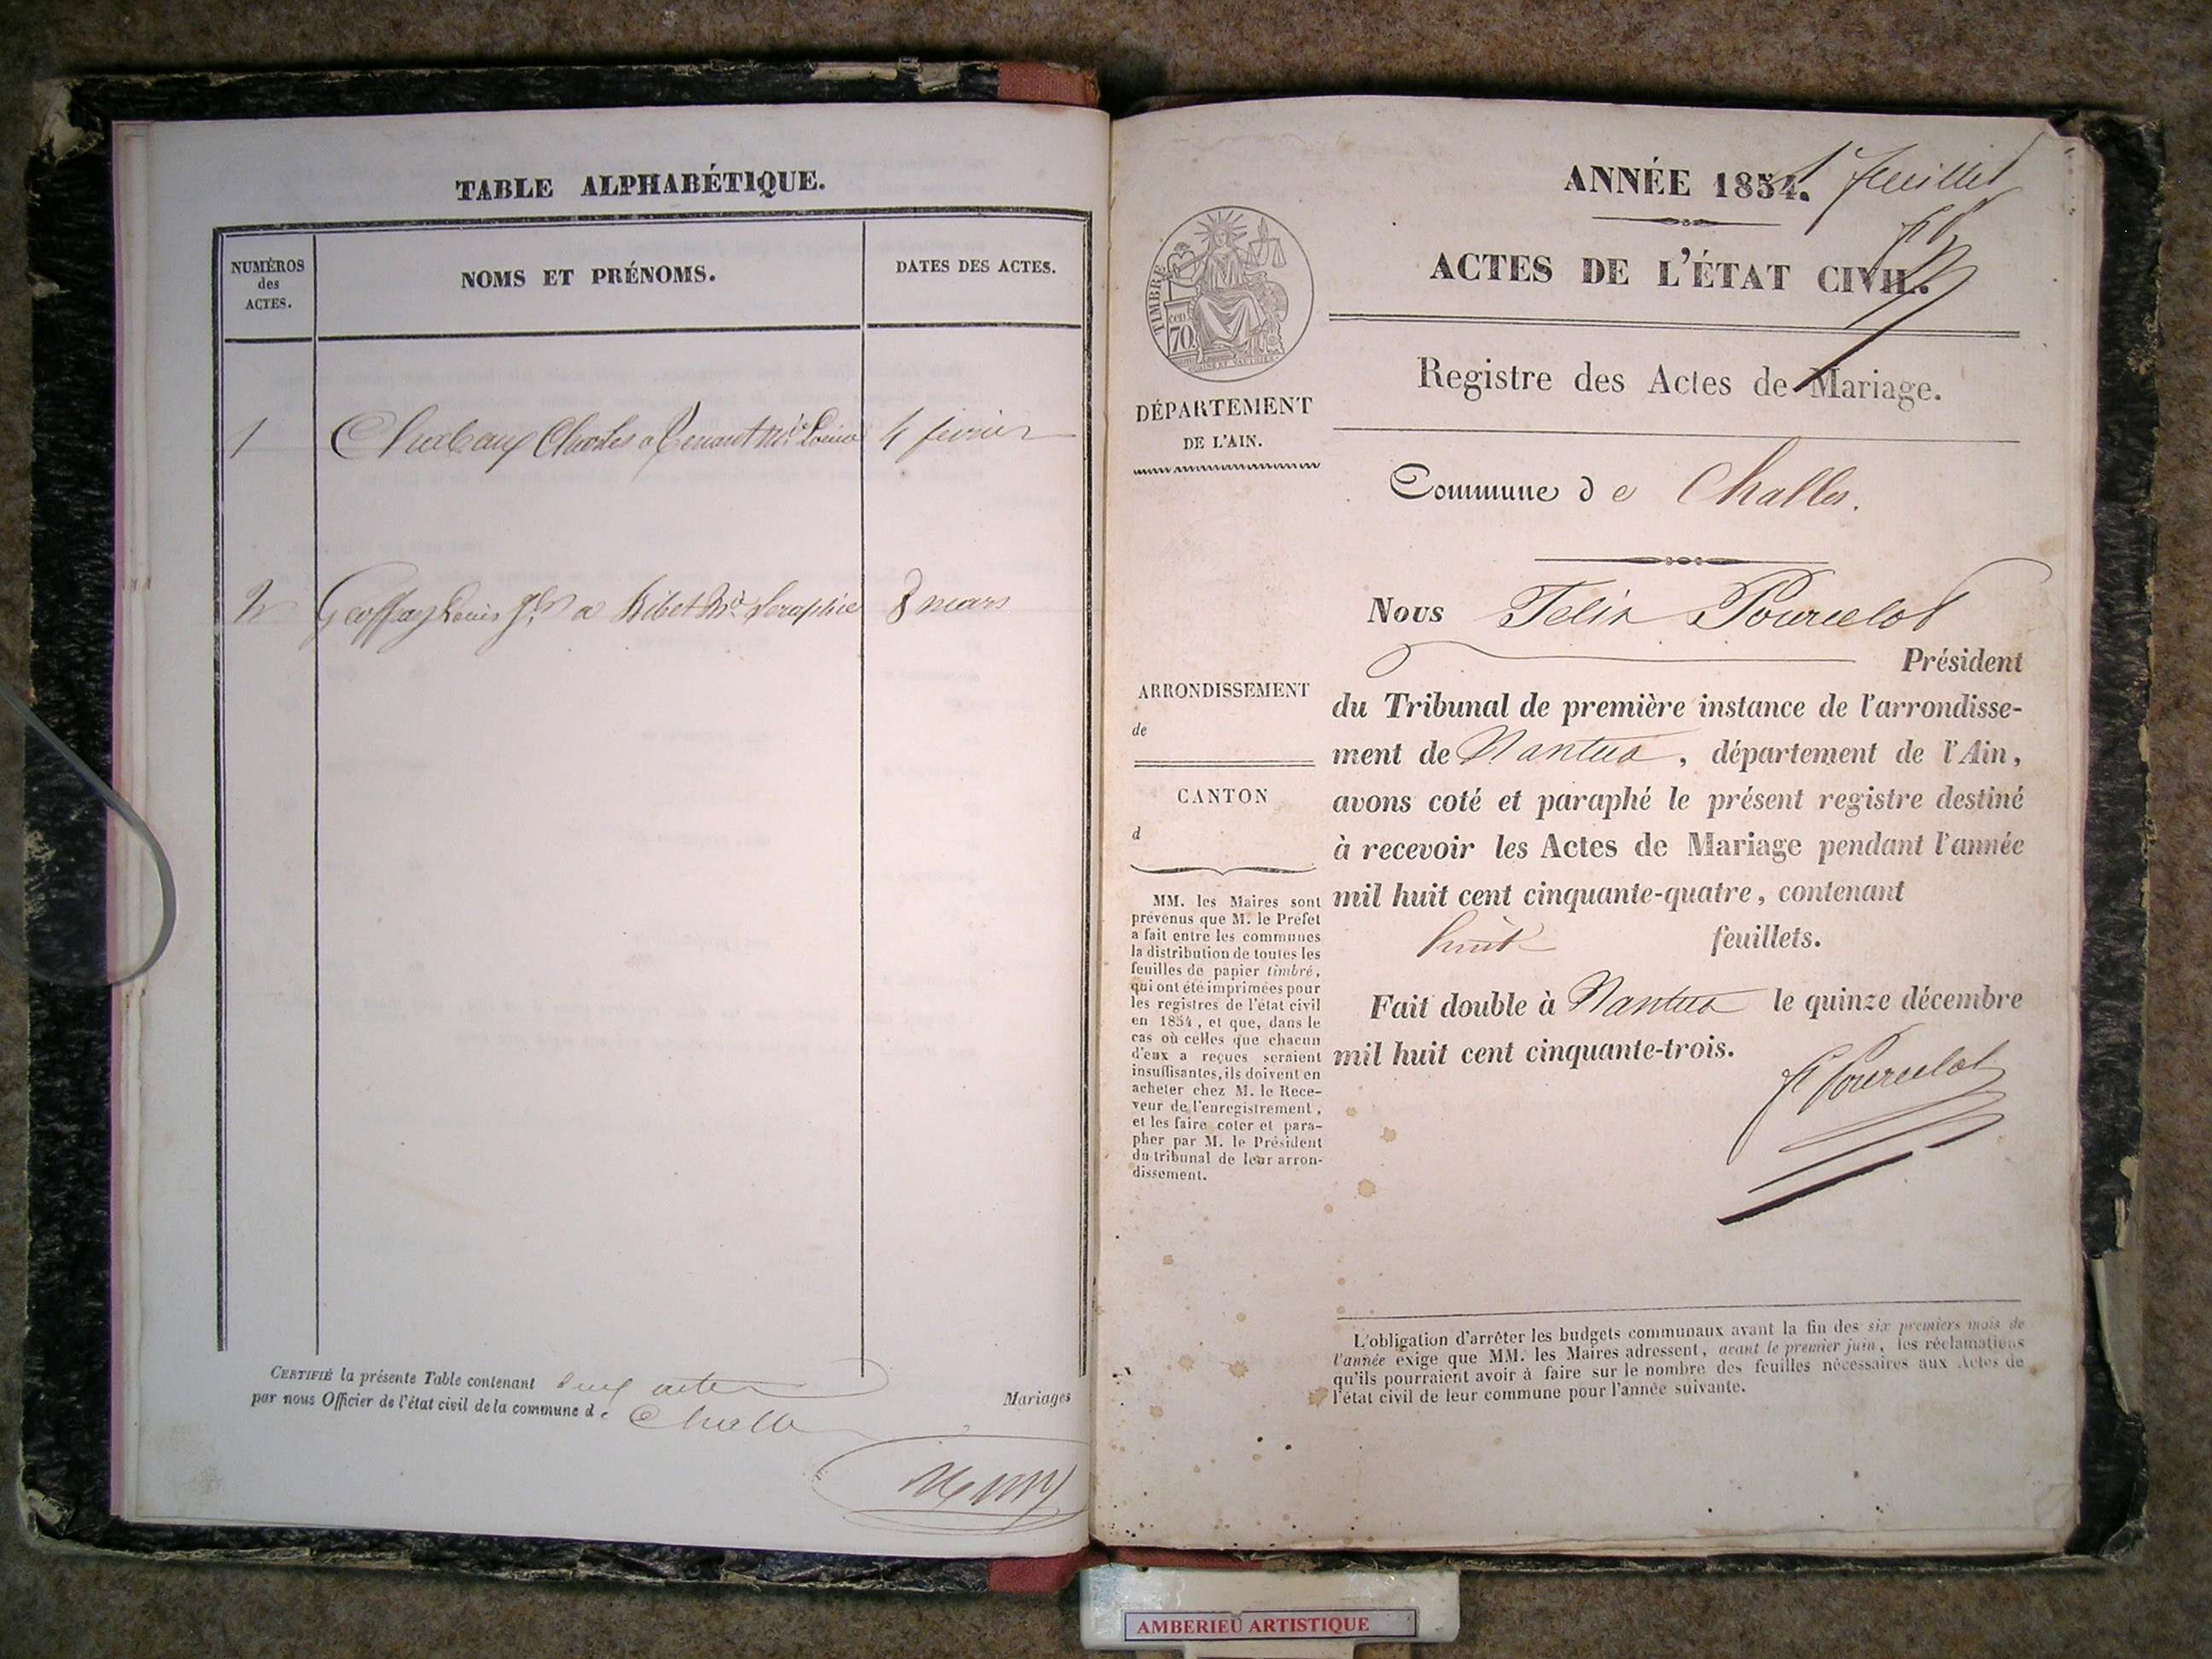 TABLE ALPHABÉTIQUE.
NUMÉROS
des
ACTES.
NOMS ET PRÉNOMS.
DATES DES ACTES.
1 Charles a Louise 4 fevrier
2 Geoffray Louis a Ribet Seraphie 8 mars
CERTIFIÉ la présente Table contenant deux actes
Mariages
par nous Officier de l'état civil de la commune de Challes
ANNÉE 1854.
1er feuillet
ACTES DE L'ÉTAT CIVIL.
TIMBRE
70
cen
Registre des Actes de Mariage.
DÉPARTEMENT
DE L'AIN.
Commune de Challes.
Nous Felix Pourcelot
Président
ARRONDISSEMENT
de
CANTON
d
du Tribunal de première instance de l'arrondisse-
ment de Nantua, département de l'Ain,
avons coté et paraphé le présent registre destiné
à recevoir les Actes de Mariage pendant l'année
mil huit cent cinquante-quatre, contenant
huit feuillets.
Fait double à Nantua le quinze décembre
mil huit cent cinquante-trois.
F Pourcelot
MM. les Maires sont
prévenus que M. le Préfet
a fait entre les communes
la distribution de toutes les
feuilles de papier timbré,
qui ont été imprimées pour
les registres de l'état civil
en 1854, et que, dans le
cas où celles que chacun
d'eux a reçues seraient
insuffisantes, ils doivent en
acheter chez M. le Rece-
veur de l'enregistrement,
et les faire coter et para-
pher par M. le Président
du tribunal de leur arron-
dissement.
L'obligation d'arrêter les budgets communaux avant la fin des six premiers mois de
l'année exige que MM. les Maires adressent, avant le premier juin, les réclamations
qu'ils pourraient avoir à faire sur le nombre des feuilles nécessaires aux Actes de
l'état civil de leur commune pour l'année suivante.
AMBERIEU ARTISTIQUE